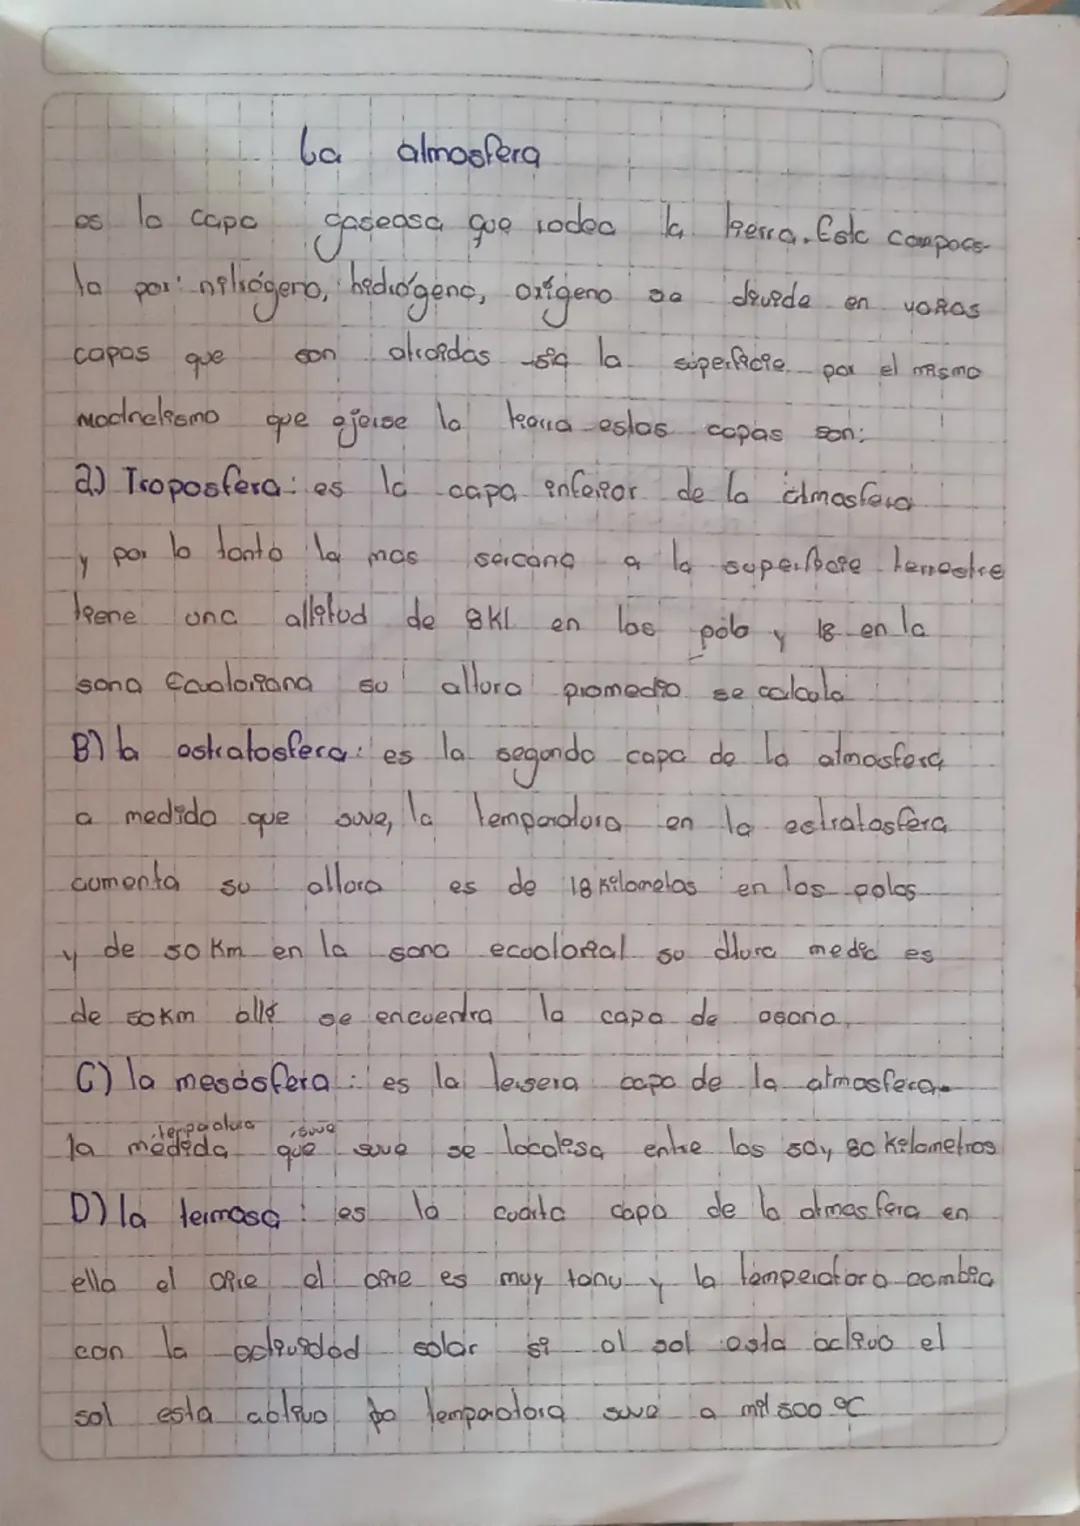 La atmosfera
es la capa gaseosa que rodea la tierra. Esta compues-
ta por: nitrógeno, hidrógeno, oxígeno se divide en varias
capas que son atraidas sia la superficie por el mismo
que ejerse la tierra estas capas son:
a) Troposfera: es la capa inferior de la atmosfera
y por lo tanto la mas sercana a la superficie terrestre
tiene una altitud de 8kl en los polo y 18 en la
sona Ecuatoriana su altura promedio se calcula
B) la estratosfera: es la segundo capa de la atmosfera
a medida que suve, la temperatura en la estratosfera
aumenta su altura es de 18 kilometos en los polos
y de 50 Km en la sona ecuatorial su altura media es
de 50Km alli se encuentra la capa de osono.
C) la mesósfera: es la tersera capa de la atmosfera.
temperatura suve
la medida que suve se localisa entre los 50 y 80 kilometros
D) la termosa: es la cuarta capa de la atmosfera en
ella el aire el aire es muy tenu y la temperatora cambia
con la actividad solar si el sol esta activo el
sol esta activo temperatora suve a mil 500 °C